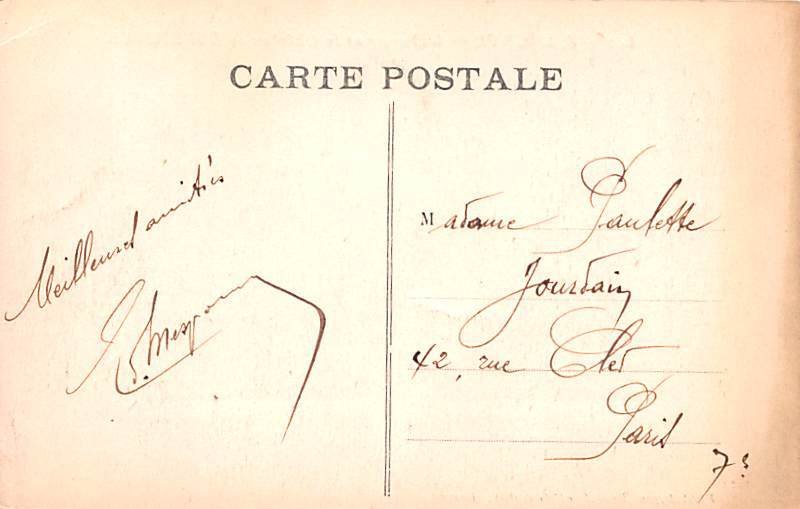 CARTE POSTALE
Meilleures amitiés
Madame Paulette
Jourdain
42, rue Cler
Paris
7e